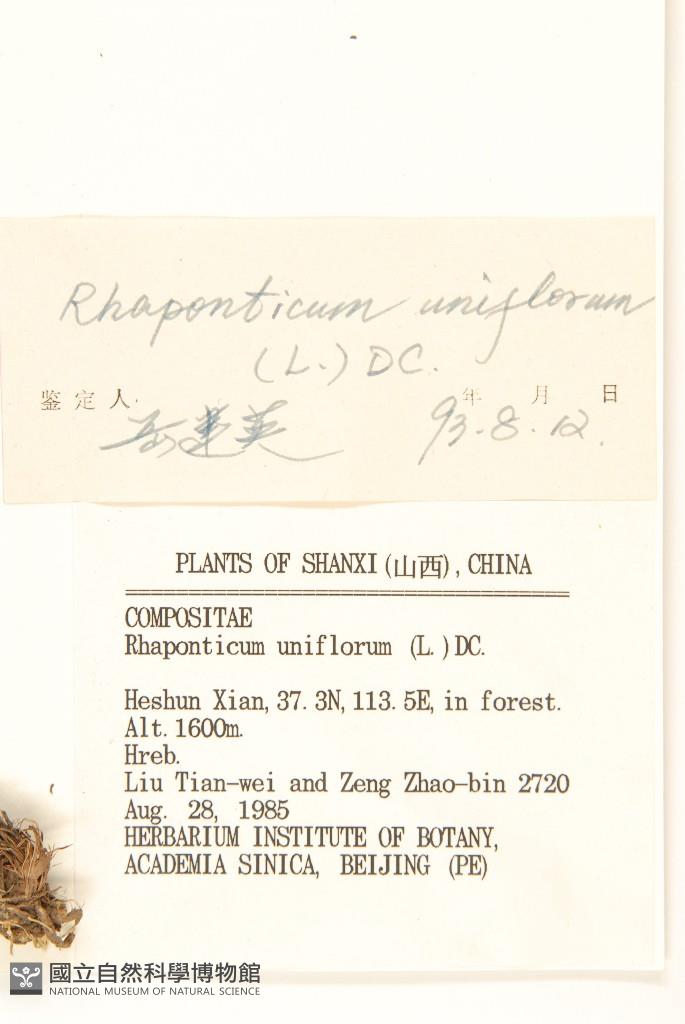 Rhaponticum uniflorum
(L.) DC.
鉴定人 年 月 日
93.8.12.
PLANTS OF SHANXI (山西), CHINA
COMPOSITAE
Rhaponticum uniflorum (L.) DC.
Heshun Xian, 37.3N, 113.5E, in forest.
Alt. 1600m.
Hreb.
Liu Tian-wei and Zeng Zhao-bin 2720
Aug. 28, 1985
HERBARIUM INSTITUTE OF BOTANY,
ACADEMIA SINICA, BEIJING (PE)
國立自然科學博物館
NATIONAL MUSEUM OF NATURAL SCIENCE